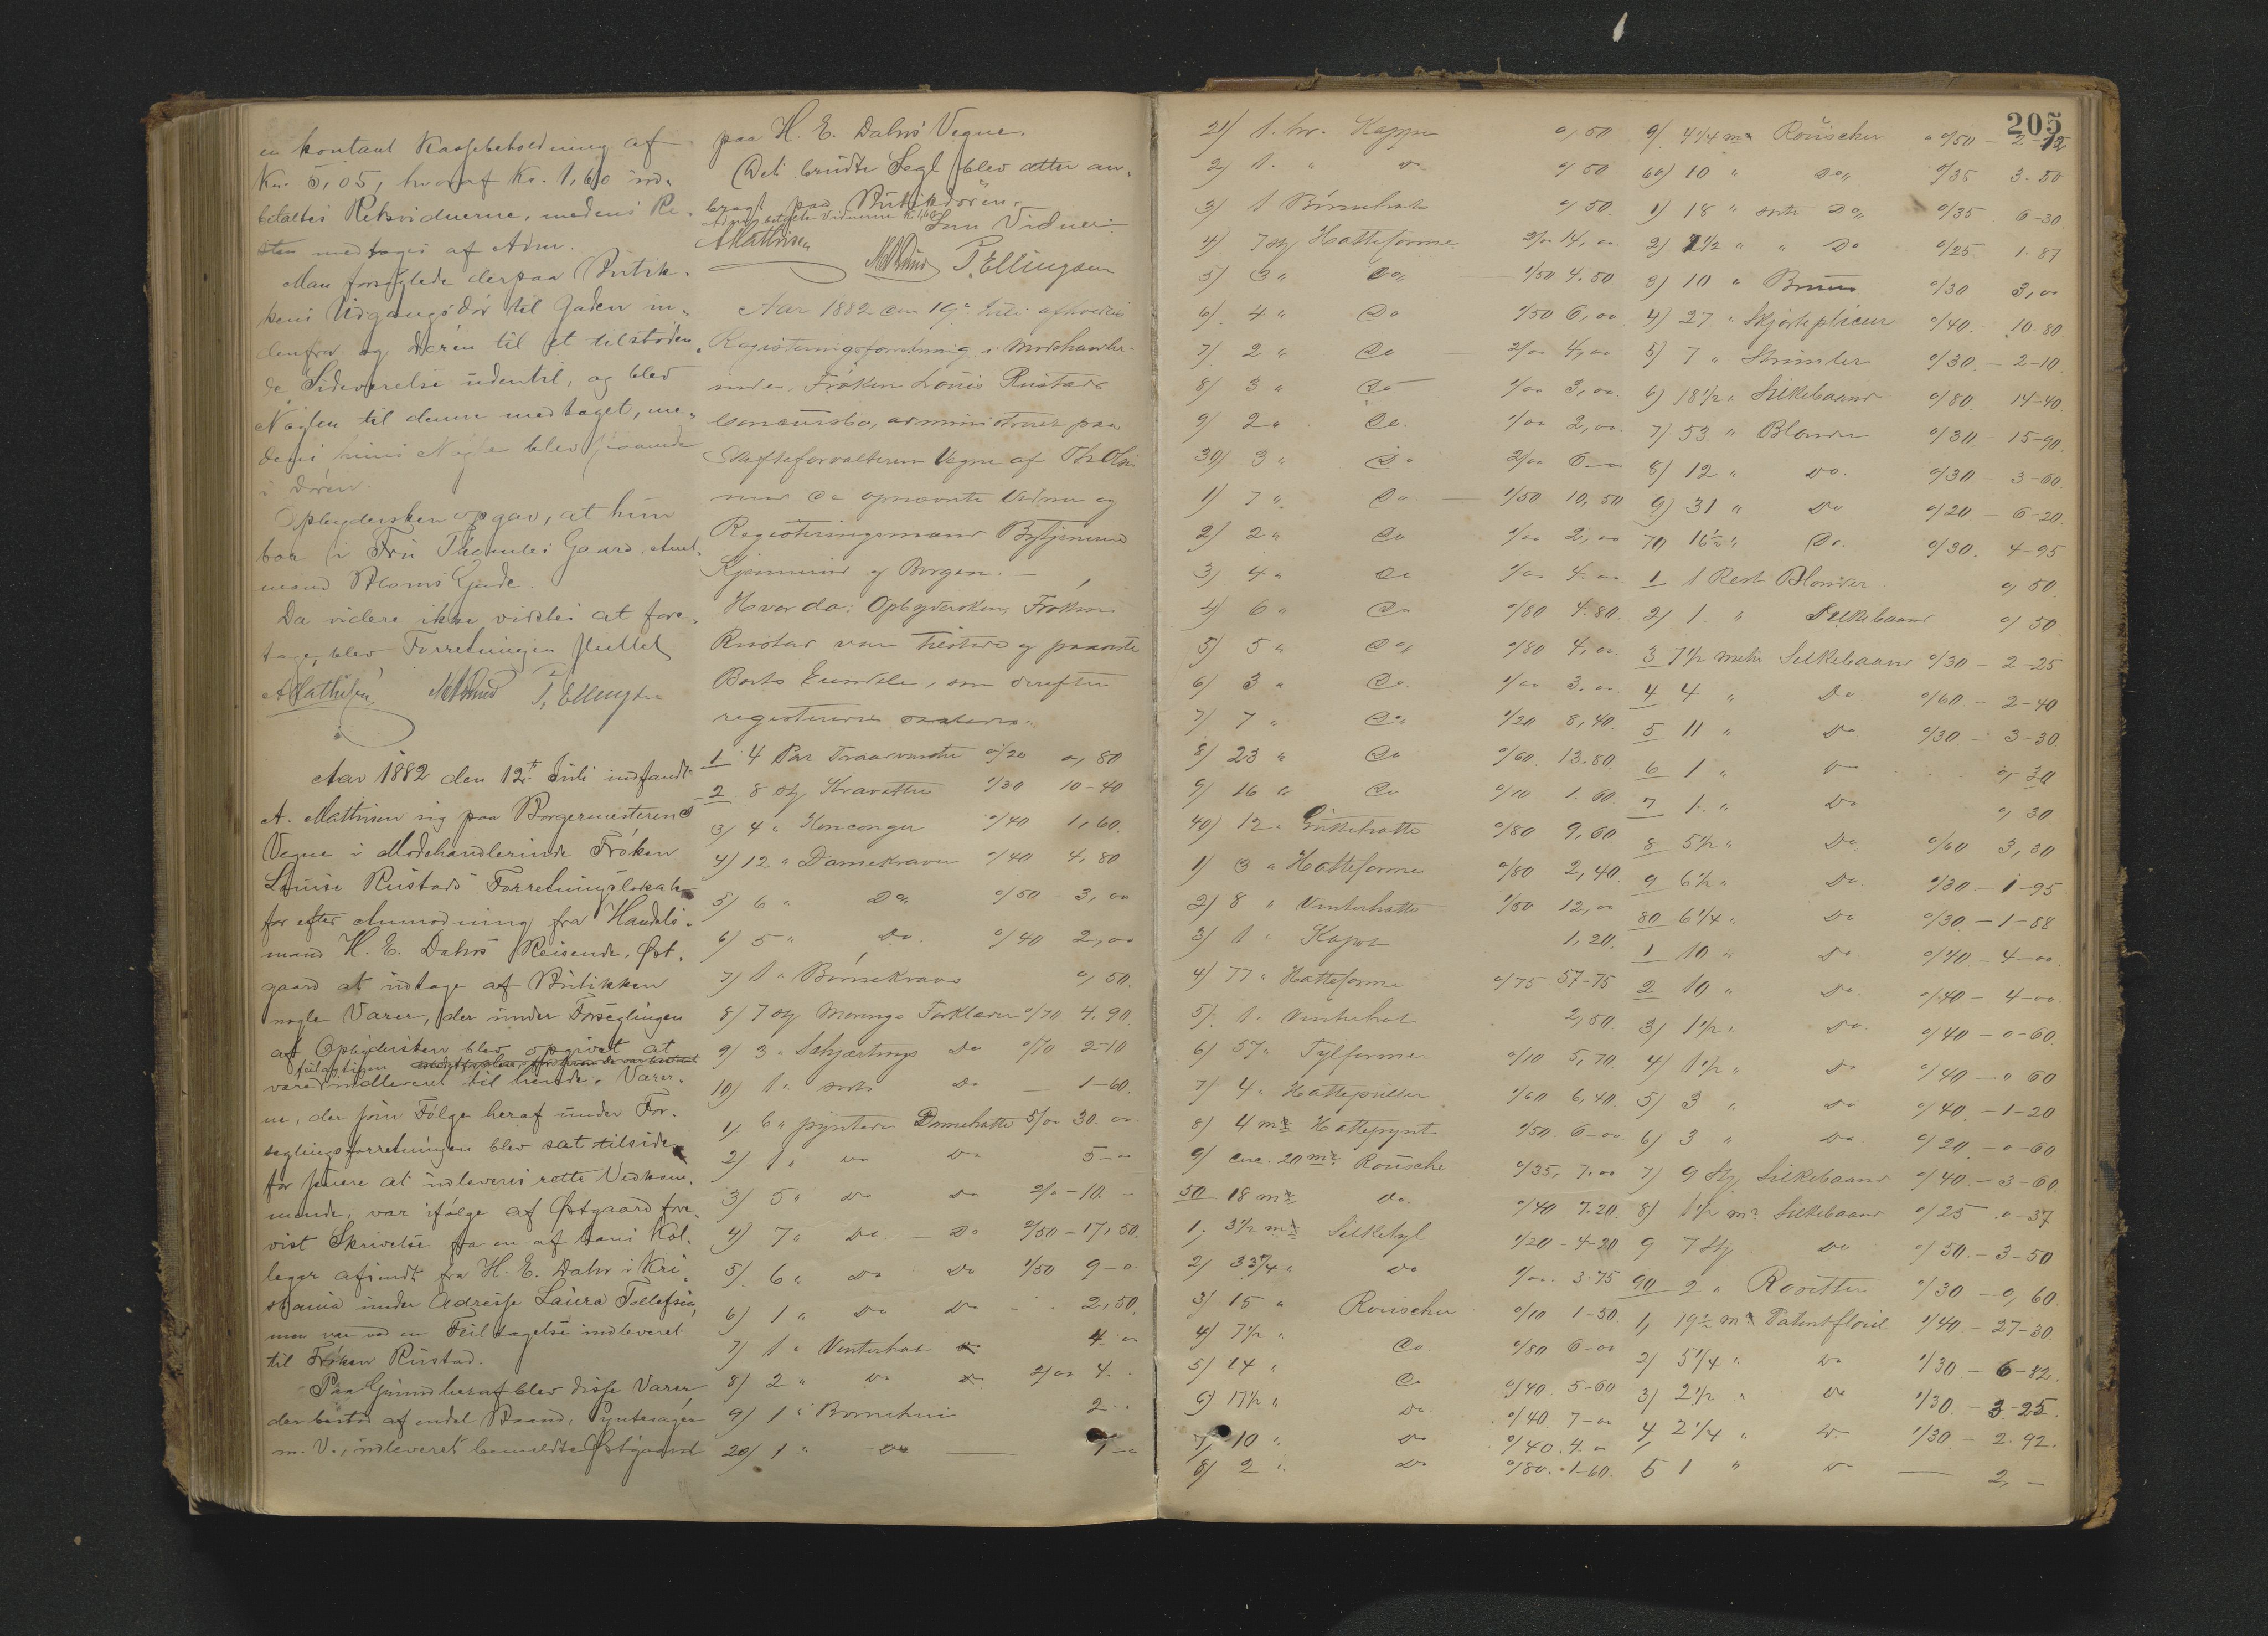 en kontant Kassebeholdning af
Kr. 5,05, hvoraf Kr. 1,60 ud-
betaltes Retsvidnerne, medens Re-
sten medtoges af Adm.
Man forseglede derpaa Butik-
kens Udgangsdør til Gaden in-
denfra og døren til et tilstøden-
de Sideværelse udentil, og blev
Nøglen til denne medtaget, me-
dens hins Nøgle blev
i døren.
Opbydersken opgav, at hun
bor i Fru Gaard, Amt-
mand Bloms Gade.
Da videre ikke vidstes at fore-
tage, blev Forretningen sluttet
A Mathisen P. Ellingsen
Aar 1882 den 12te Juli indfandt
A. Mathisen sig paa Borgermesterens
Vegne i Modehandlerinde Frøken
Louise Rustads Forretningslokale
for efter Anmodning fra Handels-
mand H. E. Dahrs Reisende, Øst-
gaard at udtage af Butikken
nogle Varer, der under Forseglingen
af Opbydersken blev opgivet at
feilagtigen
være indleveret til hende. Varer-
ne, der som Følge heraf under For-
seglingsforretningen blev sat tilside
for senere at udleveres rette Vedkom-
mende, var ifølge af Østgaard fore-
vist Skrivelse fra en af hans Kol-
leger afsendt fra H. E. Dahr i Kri-
stiania under Adresse Laura Tollefsen,
men var ved en Feiltagelse indleveret
til Frøken Rustad.
Paa Grund heraf blev disse Varer,
der bestod af endel Baand, Pyntesager
m. V., udleveret bemeldte Østgaard
paa H. E. Dahrs Vegne.
Det brudte Segl blev atter an-
bragt paa Butikdøren.
Vidnerne Kr. 1,60
Som Vidner:
A Mathisen P. Ellingsen
Aar 1882 den 19de Juli afholdtes
Registeringsforretning i Modehandler-
inde Frøken Louise Rustads
Concursbo, administreret paa
Skifteforvalterens Vegne af Th. Olsen
med de opnævnte Vidner og
Registeringsmænd Bytjenerne
og Borgen. —
Hvor da: Opbydersken, Frøken
Rustad var tilstede og paaviste
Boets Eiendele, som derefter
registreredes saaledes:
1 4 Par Traavanter 0/20 0,80
2 8 Stk Kravatter 1/30 10-40
3) 4 " 0/40 1,60.
4) 12 " Damekraver 0/40 4,80
5) 6 " Do. 0/50 3,00
6) 5 " Do. 0/40 2,00
7) 1 " Børnekrave 0,50.
8) 7 Stk Morgens Forklæder 0/70 4.90.
9) 3 " Schjærtings Do 0/70 2-10
10) 1 " sort Do 1-60.
1) 6 " pyntede Damehatte 5/00 30.00.
2) 1 " Do Do 5-00
3) 5 " Do Do 2/00 - 10. -
4) 7 " Do - Do 2/50 - 17,50.
5) 6 " Do Do 1/50 9-0
6) 1 " Do Do - . 2,50.
7) 1 " Vinterhat 4.00
8) 2 " Do 2/00 4. .
9) 1 " Børnehue 2. .
20) 1 " Do — 1-0
205
21) 1. hv. Kappe 0,50
2) 1. " Do 0/50
3) 1 Børnehat 0/50.
4) 7 Stk Hatteforme 2/00 14,00.
5) 3 " Do — 1/50 4.50
6) 4 " Do 1/50 6,00
7) 2 " Do — 2/00 4,00
8) 3 " Do 1/00 3,00.
9) 2 " Do. 1/00 2,00.
30) 3 " Do 2/00 6-00
1) 7 " Do — 1/50 10,50
2) 2 " Do 1/00 2,00
3) 4 " Do 1/00 4.00
4) 6 " Do 0/80 4.80.
5) 5 " Do 0/80 4,00.
6) 3 " Do. 1/00 3.00.
7) 7 " Do 1/20 8,40.
8) 23 " Do 0/60. 13.80.
9) 16 " Do 0/10 1.60.
40) 12 " Enkehatte 0/80 9,60.
1) 3 " Hatteforme 0/80 2,40.
2) 8 " Vinterhatte 1/50 12,00
3) 1 " Kapot 1,20.
4) 77 " Hatteforme 0/75 57-75
5) 1. Vinterhat 2,50.
6) 57 " Tylformer 0/10 5,70.
7) 4 " 1/60 6,40.
8) 4 mtr Hattepynt 1/50. 6-00.
9) circ. 20 mtr Rousche 0/35, 7.00
50 18 mtr Do. 0/40 7.20.
1. 3 1/2 mtr Silketyl 1/20 - 4-20
2) 3 3/4 " Do 1/00. 3.75
3) 15 " Rouscher 0/10 1-50.
4) 7 1/2 " Do. 0/80 6-00
5) 14 " Do 0/40. 5-60
6) 17 1/2 " Do. 0/40 7-00
7) 10 " Do 0/40. 4.00
8) 2 " Do 0/80. 1-60.
9) 4 1/4 mtr Rouscher 0/50 - 2-12
60) 10 " Do 0/35 3.50
1) 18 " sorte Do 0/35 6-30
2) 7 1/2 " " Do 0/25 1.87
3) 10 " 0/30 3,00
4) 27 " Skjorteplicier 0/40. 10.80
5) 7 " Strimler 0/30. - 2-10.
6) 18 1/2 " Silkebaand 0/80 14-40.
7) 53 " Blonder 0/30 - 15-90.
8) 12 " Do. 0/30 - 3-60
9) 31 " Do 0/20 - 6-20.
70 16 1/2 " Do. 0/30. 4-95
1 1 Rest Blonder 0,50.
2) 1. " Silkebaand 0/50
3 7 1/2 metr Silkebaand 0/30 - 2-25
4 4 " Do 0/60 - 2-40
5 11 " Do 0/30 - 3-30.
6 1 " Do 0,30
7 1. " Do 0,30.
8 5 1/2 " Do 0/60 3,30
9 6 1/2 " Do 0/30 - 1-95.
80 6 1/4 " Do 0/30 - 1-88
1 10 " Do 0/40 - 4-00.
2 10 " Do. 0/40 - 4-00.
3) 1 1/2 " Do. 0/40 - 0-60.
4) 1 1/2 " Do 0/40 - 0 60
5) 3 " Do 0/40. - 1-20
6) 3 " Do 0/20. - 0-60
7) 9 Stk Silkebaand 0/40. - 3-60.
8) 1 1/2 mtr Silkebaand 0/25 .0-37
9 7 Stk Do 0/50. - 3-50
90 2 " Rosetter 0/30 - 0,60.
1, 19 1/2 mtr Patentfløiel 1/40 - 27-30.
2) 5 1/4 " Do 1/30. - 6-82.
3) 2 1/2 " Do 1/30. - 3-25.
4 2 1/4 " Do 1/30 - 2.92.
5 1 " Do — 2, -